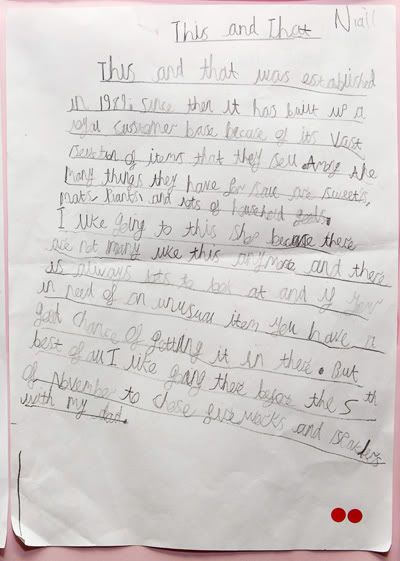 This and That Niall
This and that was established
in 1989. since then it has built up a
loyal customer base because of its vast
selection of items that they sell. Among the
many things they have for sale are sweets,
mats, plants and lots of household goods.
I like going to this shop because there
are not many like this anymore and there
is always lots to look at and if your
in need of an unusual item you have a
good chance of getting it in there. But
best of all I like going there before the 5th
of November to chose fireworks and
with my dad.